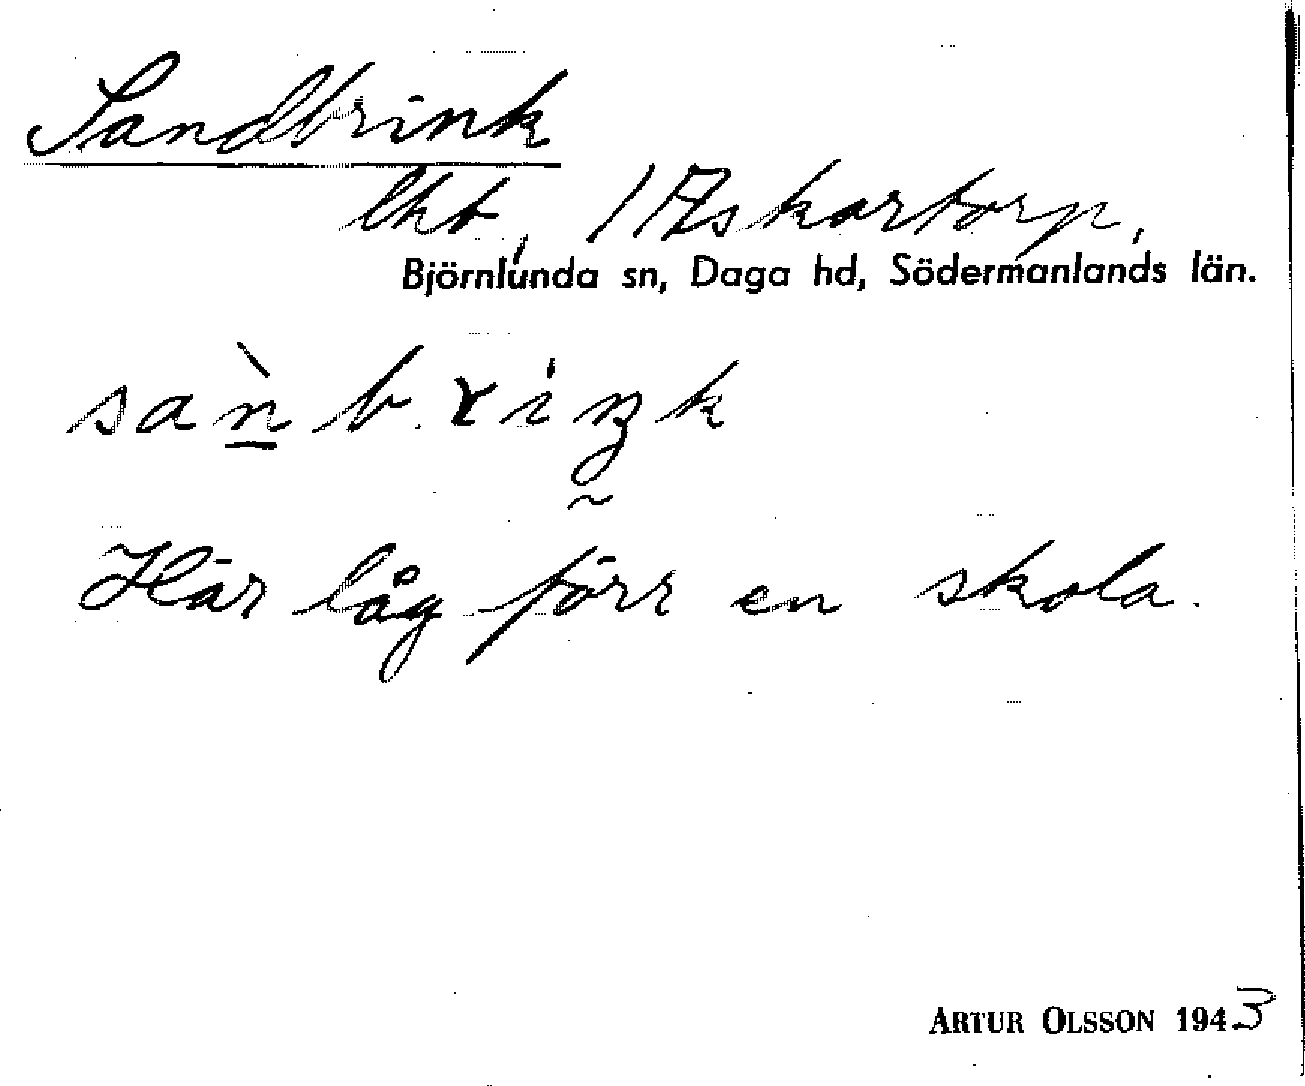 Sandbrink
lht, 1 Askartorp,
Björnlunda sn, Daga hd, Södermanlands län.
sàn̲briŋk
Här låg förr en skola.
ARTUR OLSSON 1943